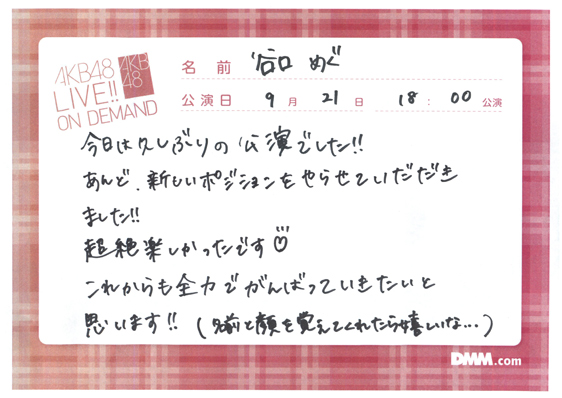 AKB48
LIVE!!
ON DEMAND
AKB
48
名前 谷口 めぐ
公演日 9月21日 18:00公演
今日は久しぶりの公演でした!!
あんど、新しいポジションをやらせていただき
ました!!
超絶楽しかったです♡
これからも全力でがんばっていきたいと
思います!! (名前と顔を覚えてくれたら嬉しいな...)
DMM.com